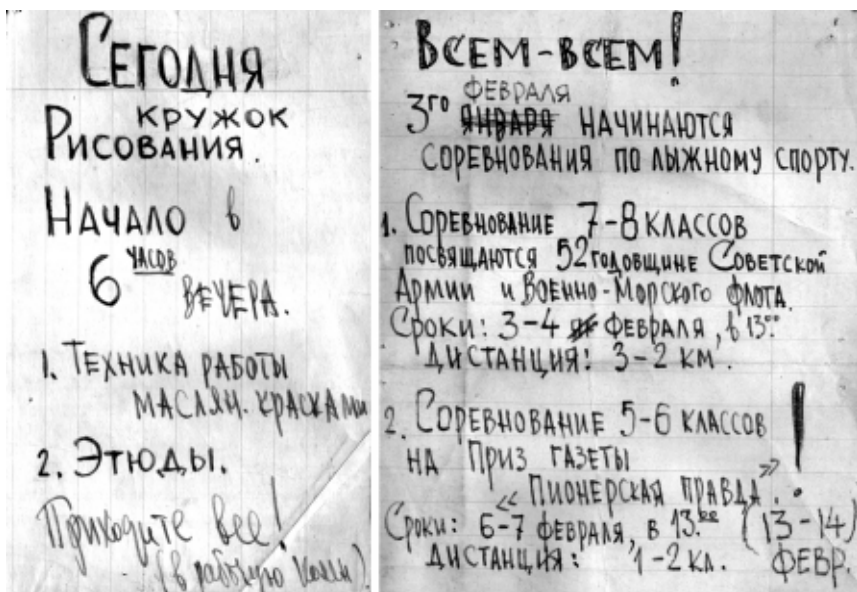 Сегодня
кружок
Рисования.
Начало в
6 часов
вечера.
1. Техника работы
маслян. красками
2. Этюды.
Приходите все!
(в рабочую
Всем-всем!
февраля
3го января начинаются
соревнования по лыжному спорту.
1. Соревнование 7-8 классов
посвящаются 52 годовщине Советской
Армии и Военно-Морского флота.
Сроки: 3-4 февраля, в 13.00
дистанция: 3-2 км.
2. Соревнование 5-6 классов !
на Приз газеты
«Пионерская правда».
Сроки: 6-7 февраля, в 13.00 (13-14)
дистанция: 1-2 кл. февр.